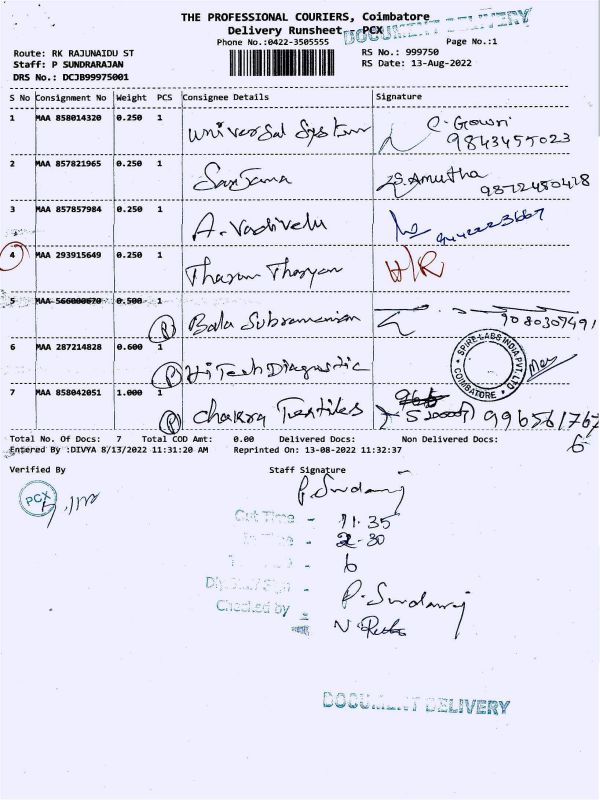 THE PROFESSIONAL COURIERS, Coimbatore
Delivery Runsheet PCX
DOCUMENT DELIVERY
Phone No.:0422-3505555 Page No.:1
Route: RK RAJUNAIDU ST RS No.: 999750
Staff: P SUNDRARAJAN RS Date: 13-Aug-2022
DRS No.: DCJB99975001
S No Consignment No Weight PCS Consignee Details Signature
1 MAA 858014320 0.250 1 Universal System C. Gowri
9843455023
2 MAA 857821965 0.250 1 Sanjana S. Amutha
3 MAA 857857984 0.250 1 A. Vadivelu
4 MAA 293915649 0.250 1 H/R
5 MAA 566000670 0.500 1 (P) Bala Subramanian 9080307491
6 MAA 287214828 0.600 1 (P) HiTech Diagnostic SPIRE LABS INDIA PVT. LTD COIMBATORE
7 MAA 858042051 1.000 1 (P) Chakra Textiles
Total No. Of Docs: 7 Total COD Amt: 0.00 Delivered Docs: Non Delivered Docs:
6
Entered By :DIVYA 8/13/2022 11:31:20 AM Reprinted On: 13-08-2022 11:32:37
Verified By Staff Signature
PCX
Out Time - 11.35
In Time - 2.30
- 6
Checked by
DOCUMENT DELIVERY